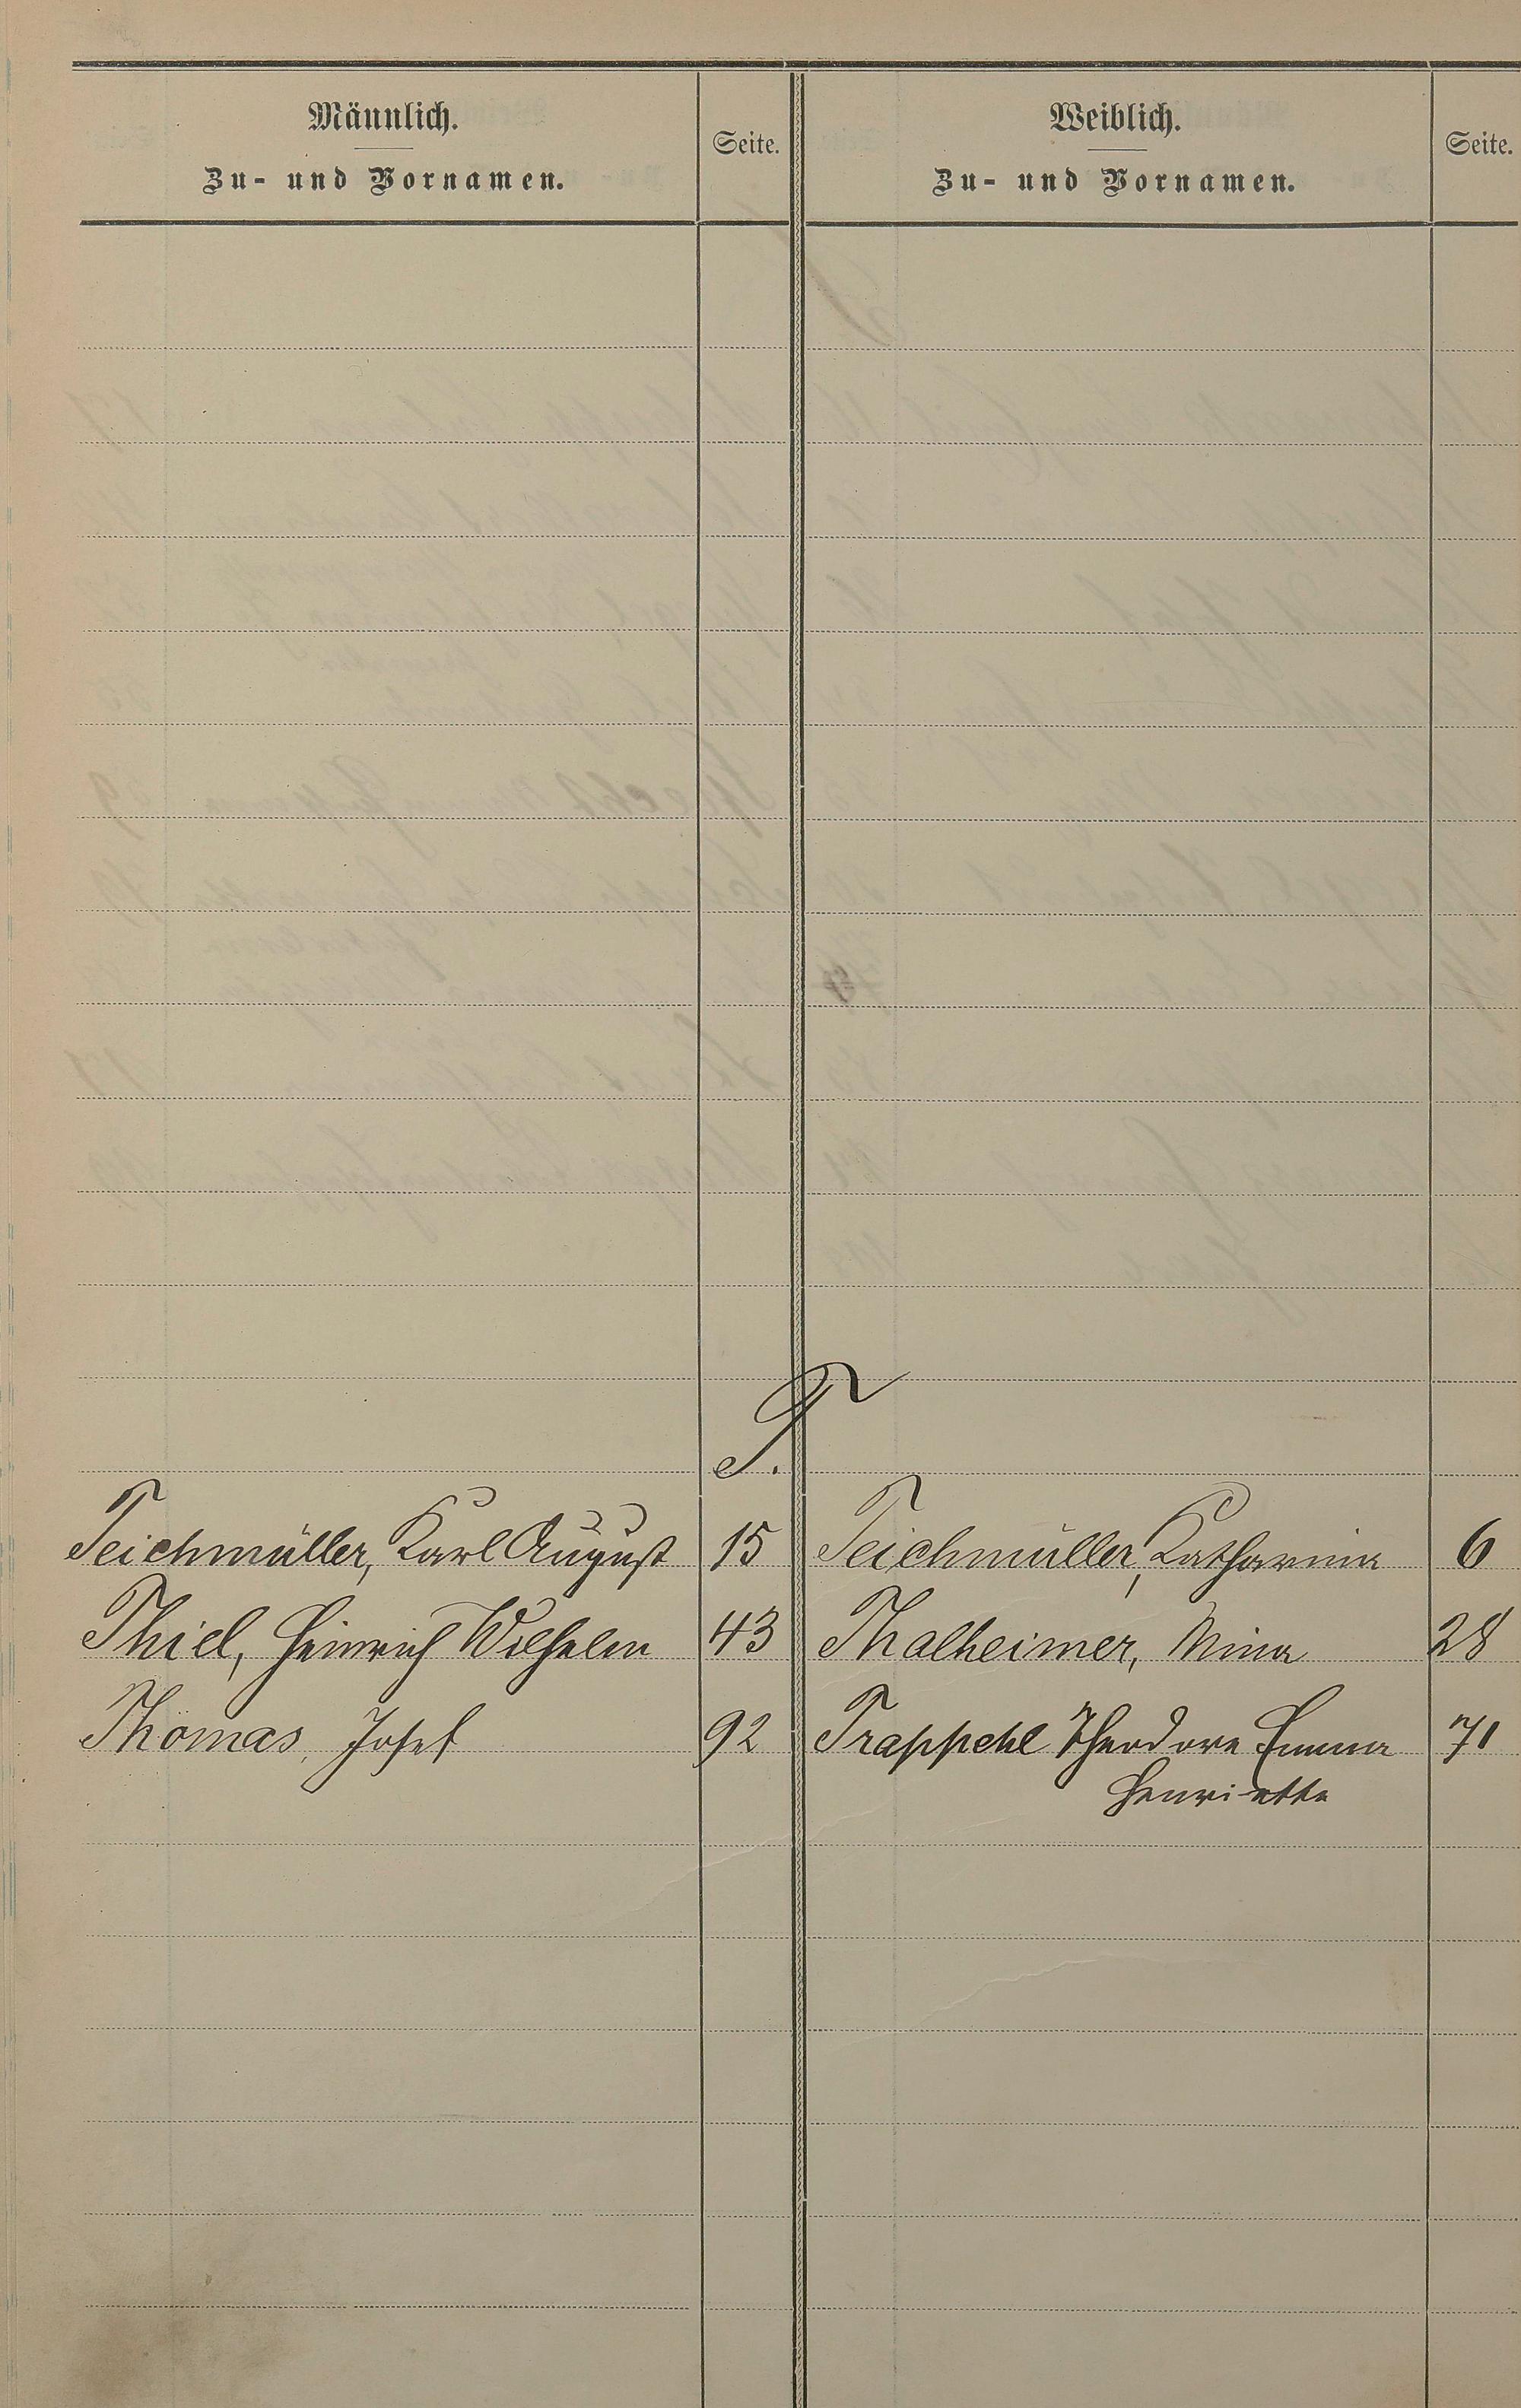 Männlich.
Zu- und Vornamen.
Seite.
Weiblich.
Zu- und Vornamen.
Seite.
T.
Teichmüller, Karl August 15
Thiel, Heinrich Wilhelm 43
Thomas, Josef 92
Teichmüller, Katharina 6
Thalheimer, Mina 28
Trappehl Theodore Emma 71
Henriette